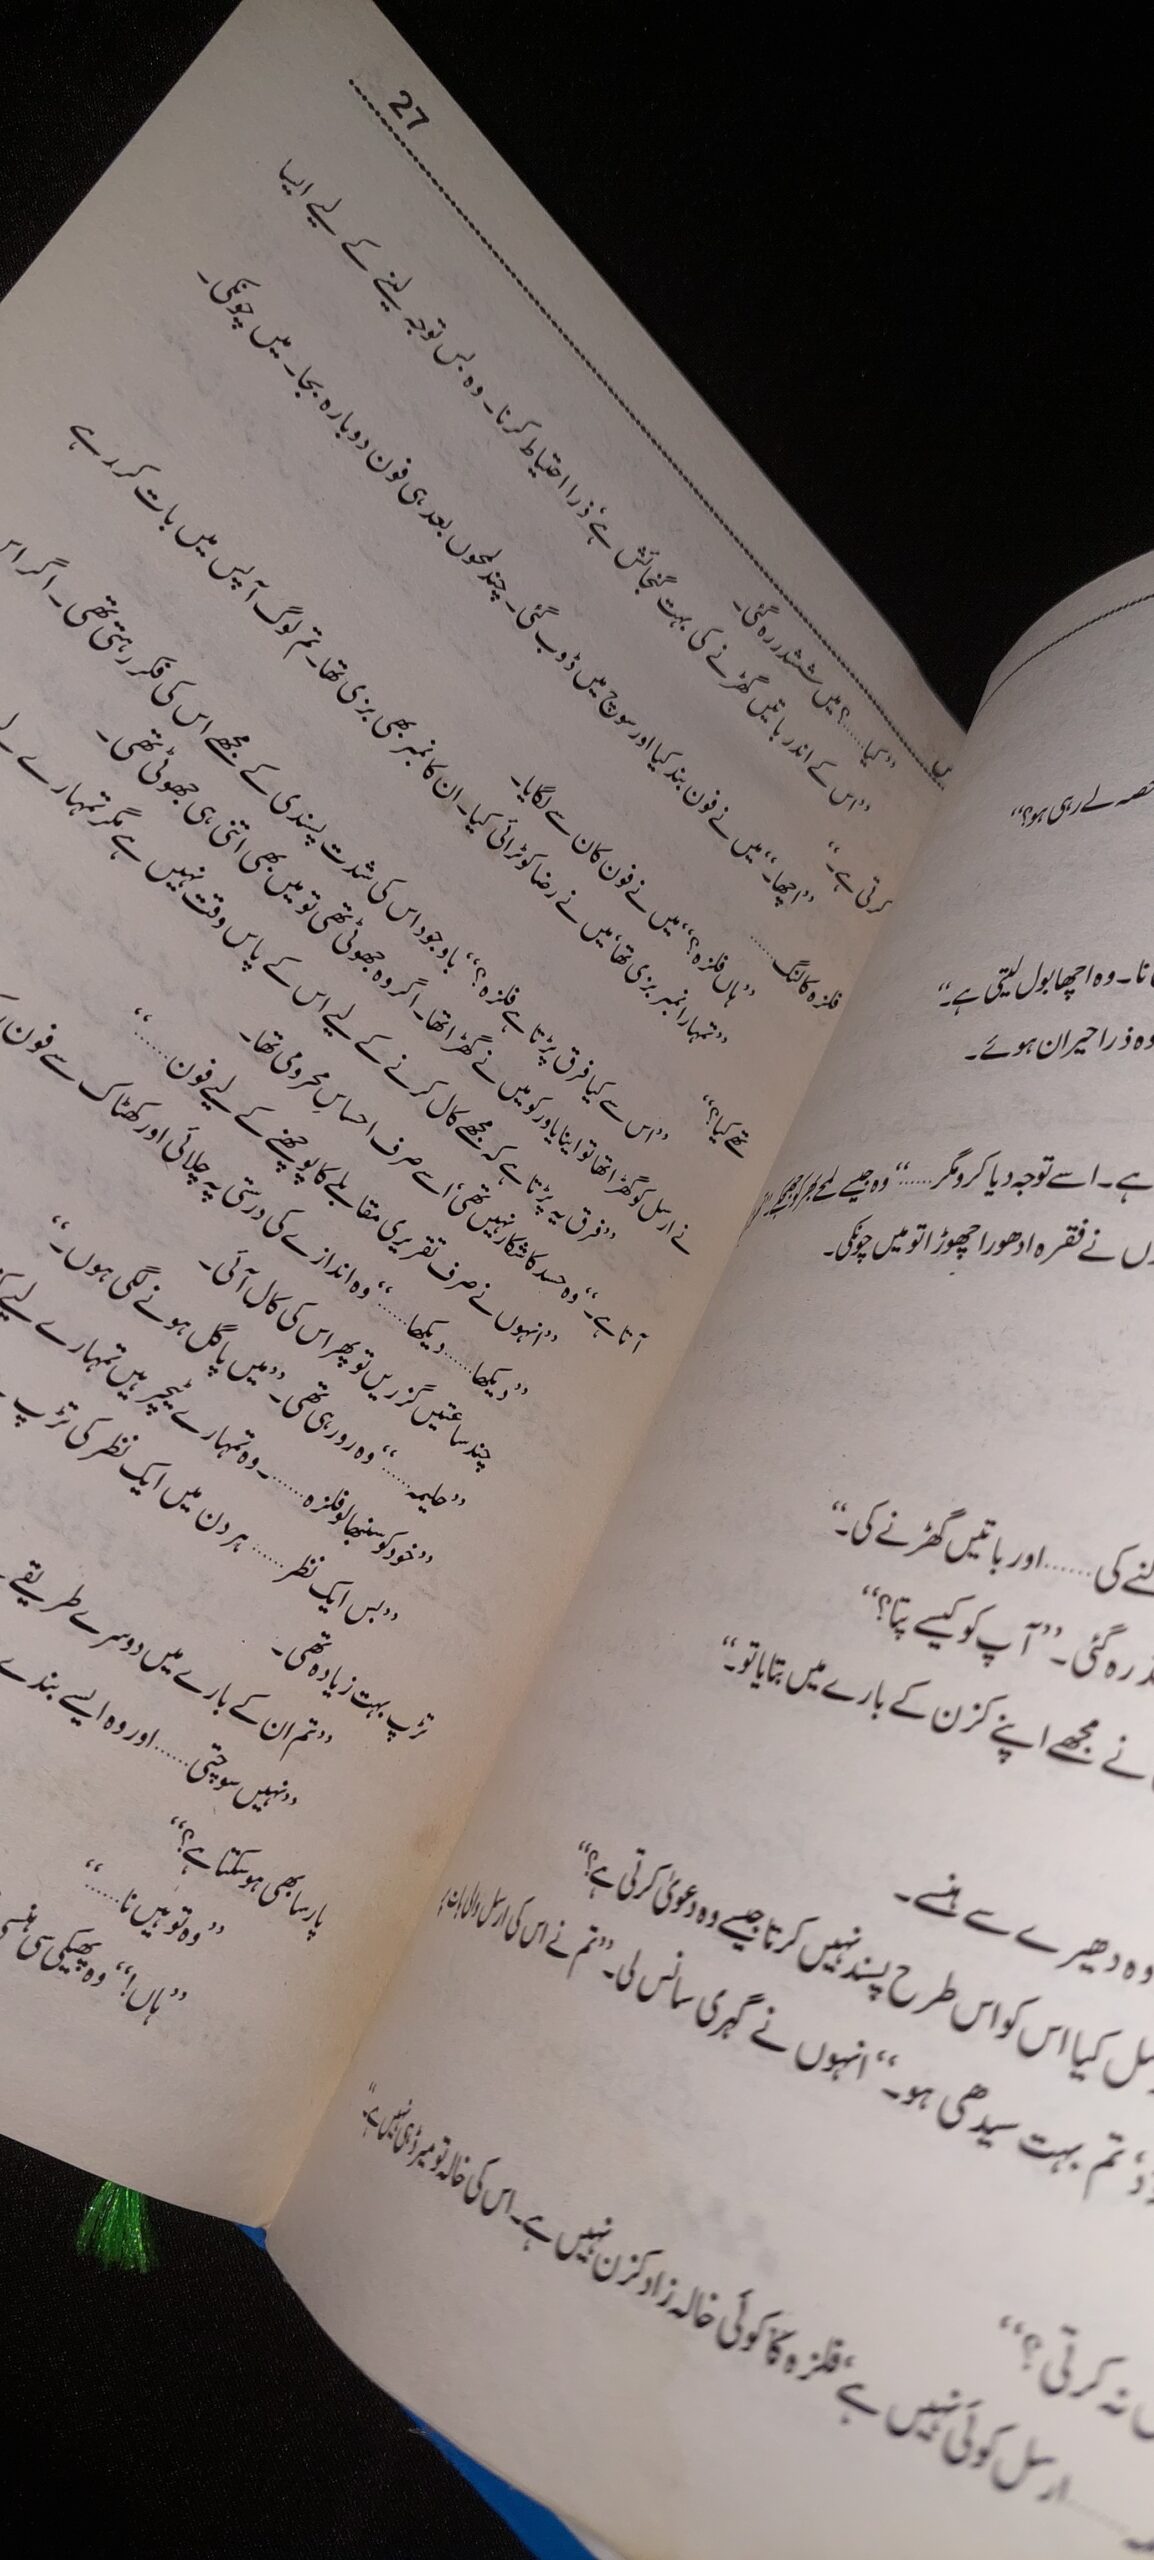 حصہ لے رہی ہو؟“
نا۔ وہ اچھا بول لیتی ہے۔“
وہ ذرا حیران ہوئے۔
ہے۔ اسے توجہ دیا کرو مگر......“ وہ جیسے لمحے بھر کو
نے فقرہ ادھورا چھوڑا تو میں چونکی۔
کی...... اور باتیں گھڑنے کی۔“
رہ گئی۔ ”آپ کو کیسے پتا؟“
نے مجھے اپنے کزن کے بارے میں بتایا تو۔“
وہ دھیرے سے ہنسے۔
کیا اس کو اس طرح پسند نہیں کرتا جیسے وہ دعویٰ کرتی ہے؟“
تم بہت سیدھی ہو۔“ انہوں نے گہری سانس لی۔ ”تم نے اس کی ارسل والی بات پر
نہ کرتی؟“
ارسل کوئی نہیں ہے، فلزہ کا کوئی خالہ زاد کزن نہیں ہے۔ اس کی خالہ تو میرڈ ہی نہیں ہے۔“
27
”کیا......؟ میں ششدر رہ گئی۔
”اس کے اندر باتیں گھڑنے کی بہت گنجائش ہے، ذرا احتیاط کرنا۔ وہ بس توجہ لینے کے لیے ایسا
کرتی ہے۔“
”اچھا۔“ میں نے فون بند کیا اور سوچ میں ڈوب گئی۔ چند لمحوں بعد ہی فون دوبارہ بجا۔ میں چونکی۔
فلزہ کالنگ......
”ہاں فلزہ؟“ میں نے فون کان سے لگایا۔
”تمہارا نمبر بزی تھا، میں نے رضا کو ٹرائی کیا۔ ان کا نمبر بھی بزی تھا۔ تم لوگ آپس میں بات کر رہے
تھے کیا؟“
”اس سے کیا فرق پڑتا ہے فلزہ؟“ باوجود اس کی شدت پسندی کے مجھے اس کی فکر رہتی تھی۔ اگر اس
نے ارسل کو گھڑا تھا تو اینا یاور کو میں نے گھڑا تھا۔ اگر وہ جھوٹی تھی تو میں بھی اتنی ہی جھوٹی تھی۔
”فرق یہ پڑتا ہے کہ مجھے کال کرنے کے لیے اس کے پاس وقت نہیں ہے مگر تمہارے
آتا ہے۔“ وہ حسد کا شکار نہیں تھی، اسے صرف احساسِ محرومی تھا۔
”انہوں نے صرف تقریری مقابلے کا پوچھنے کے لیے فون......“
”دیکھا...... دیکھا......“ وہ اندازے کی درستی پہ چلائی اور کھٹاک سے فون
چند ساعتیں گزریں تو پھر اس کی کال آئی۔
”حلیمہ......“ وہ رو رہی تھی۔ ”میں پاگل ہونے لگی ہوں۔“
”خود کو سنبھالو فلزہ...... وہ تمہارے ٹیچر ہیں تمہارے لیے
”بس ایک نظر...... ہر دن میں ایک نظر کی تڑپ
تڑپ بہت زیادہ تھی۔
”تم ان کے بارے میں دوسرے طریقے
”نہیں سوچتی...... اور وہ ایسے بندے
پارسا بھی ہو سکتا ہے؟“
”وہ تو ہیں نا......“
”ہاں!“ وہ پھیکی سی ہنسی